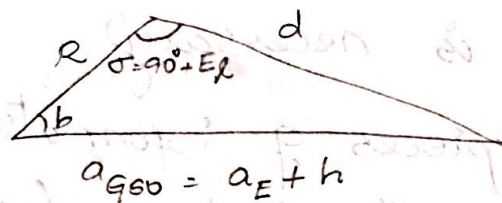 d
R
σ=90°+El
b
aGSO = aE + h